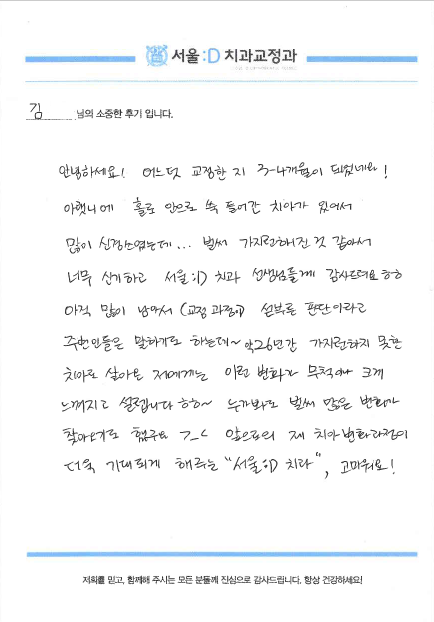 서울:D 치과교정과
김 님의 소중한 후기 입니다.
안녕하세요! 어느덧 교정한 지 3-4개월이 되었네요!
아랫니에 홀로 안으로 쏙 들어간 치아가 있어서
많이 신경쓰였는데... 벌써 가지런해진 것 같아서
너무 신기하고 서울:D 치과 선생님들께 감사드려요 ㅎㅎ
아직 많이 남아서 (교정 과정이) 섣부른 판단이라고
주변인들은 말하기도 하는데~ 약 26년간 가지런하지 못한
치아로 살아온 저에게는 이런 변화가 무척이나 크게
느껴지고 설렙니다 ㅎㅎ~ 누가봐도 벌써 많은 변화가
찾아오기도 했구요 >_< 앞으로의 제 치아변화과정이
더욱 기대되게 해주는 "서울:D 치과", 고마워요!
저희를 믿고, 함께해 주시는 모든 분들께 진심으로 감사드립니다. 항상 건강하세요!